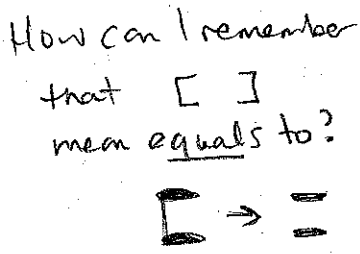 How can I remember
that [ ]
mean equals to?
[ → =